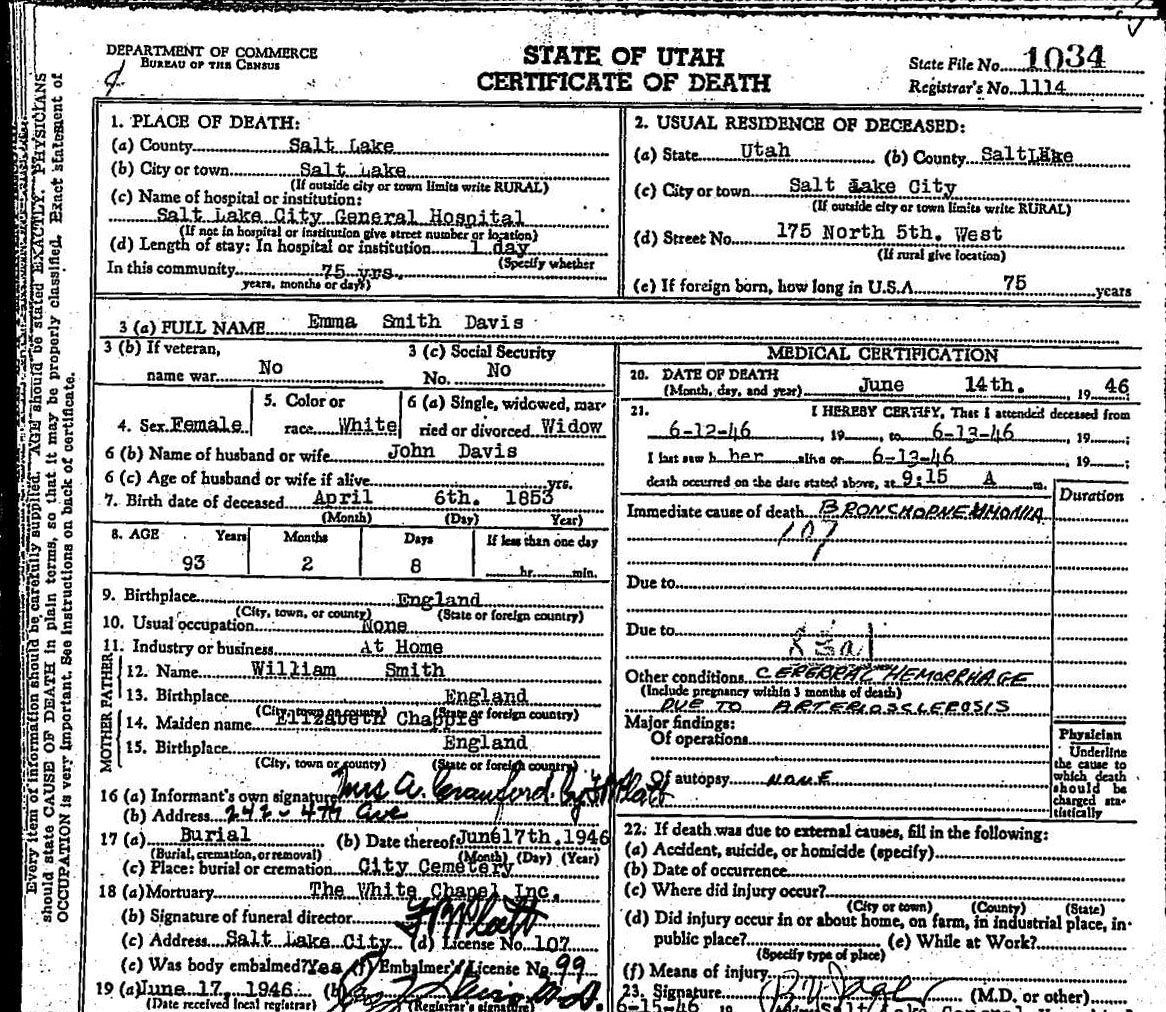 DEPARTMENT OF COMMERCE
BUREAU OF THE CENSUS
STATE OF UTAH
CERTIFICATE OF DEATH
State File No. 1034
Registrar's No. 1114
Every item of information should be carefully supplied. AGE should be stated EXACTLY. PHYSICIANS
should state CAUSE OF DEATH in plain terms, so that it may be properly classified. Exact statement of
OCCUPATION is very important. See instructions on back of certificate.
1. PLACE OF DEATH:
(a) County Salt Lake
(b) City or town Salt Lake
(If outside city or town limits write RURAL)
(c) Name of hospital or institution:
Salt Lake City General Hospital
(If not in hospital or institution give street number or location)
(d) Length of stay: In hospital or institution 1 day
(Specify whether
In this community 75 yrs.
years, months or days)
2. USUAL RESIDENCE OF DECEASED:
(a) State Utah (b) County Salt Lake
(c) City or town Salt Lake City
(If outside city or town limits write RURAL)
(d) Street No. 175 North 5th. West
(If rural give location)
(e) If foreign born, how long in U.S.A. 75 years
3 (a) FULL NAME Emma Smith Davis
3 (b) If veteran,
name war No
3 (c) Social Security
No. No
4. Sex Female
5. Color or
race White
6 (a) Single, widowed, mar-
ried or divorced Widow
6 (b) Name of husband or wife John Davis
6 (c) Age of husband or wife if alive yrs.
7. Birth date of deceased April 6th. 1853
(Month) (Day) Year)
8. AGE Years Months Days If less than one day
93 2 8 hr. min.
9. Birthplace England
(City, town, or county) (State or foreign country)
10. Usual occupation None
11. Industry or business At Home
FATHER
12. Name William Smith
13. Birthplace England
(City, town or county) (State or foreign country)
MOTHER
14. Maiden name Elizabeth
15. Birthplace England
(City, town or county) (State or foreign country)
16 (a) Informant's own signature Mrs A. Crawford. By F M Platt
(b) Address 242 - 4th Ave
17 (a) Burial (b) Date thereof June 17th. 1946
(Burial, cremation, or removal) (Month) (Day) (Year)
(c) Place: burial or cremation City Cemetery
18 (a) Mortuary The White Chapel Inc.
(b) Signature of funeral director F M Platt
(c) Address Salt Lake City (d) License No. 107
(e) Was body embalmed? Yes (f) Embalmer's License No. 99
19 (a) June 17, 1946 (b)
(Date received local registrar) (Registrar's signature)
MEDICAL CERTIFICATION
20. DATE OF DEATH
(Month, day, and year) June 14th. 19 46
21. I HEREBY CERTIFY, That I attended deceased from
6-12-46, 19 , to 6-13-46, 19 ;
I last saw h her alive on 6-13-46, 19 ;
death occurred on the date stated above, at 9:15 A m.
Duration
Immediate cause of death BRONCHOPNEUMONIA
107
Due to
Due to
Other conditions CEREBRAL HEMORRHAGE
(Include pregnancy within 3 months of death)
DUE TO ARTERIOSCLEROSIS
Major findings:
Of operations
Of autopsy NONE
Physician
Underline
the cause to
which death
should be
charged sta-
tistically
22. If death was due to external causes, fill in the following:
(a) Accident, suicide, or homicide (specify)
(b) Date of occurrence
(c) Where did injury occur?
(City or town) (County) (State)
(d) Did injury occur in or about home, on farm, in industrial place, in
public place? (e) While at Work?
(Specify type of place)
(f) Means of injury
23. Signature (M.D. or other)
6-15-46 19 Address Salt Lake General